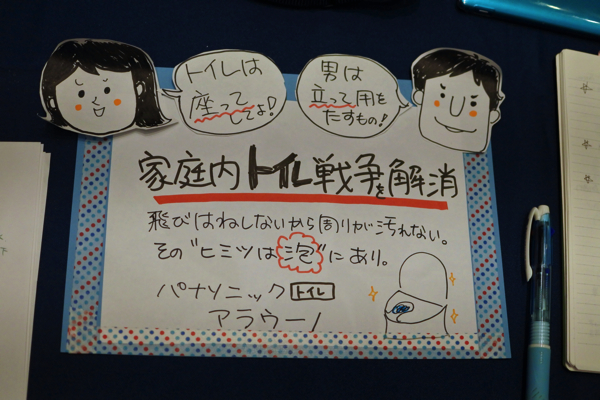 トイレは
座って
してよ!
男は
立って用を
たすもの!
家庭内トイレ戦争を解消
飛びはねしないから周りが汚れない。
その"ヒミツは泡"にあり。
パナソニック トイレ
アラウーノ